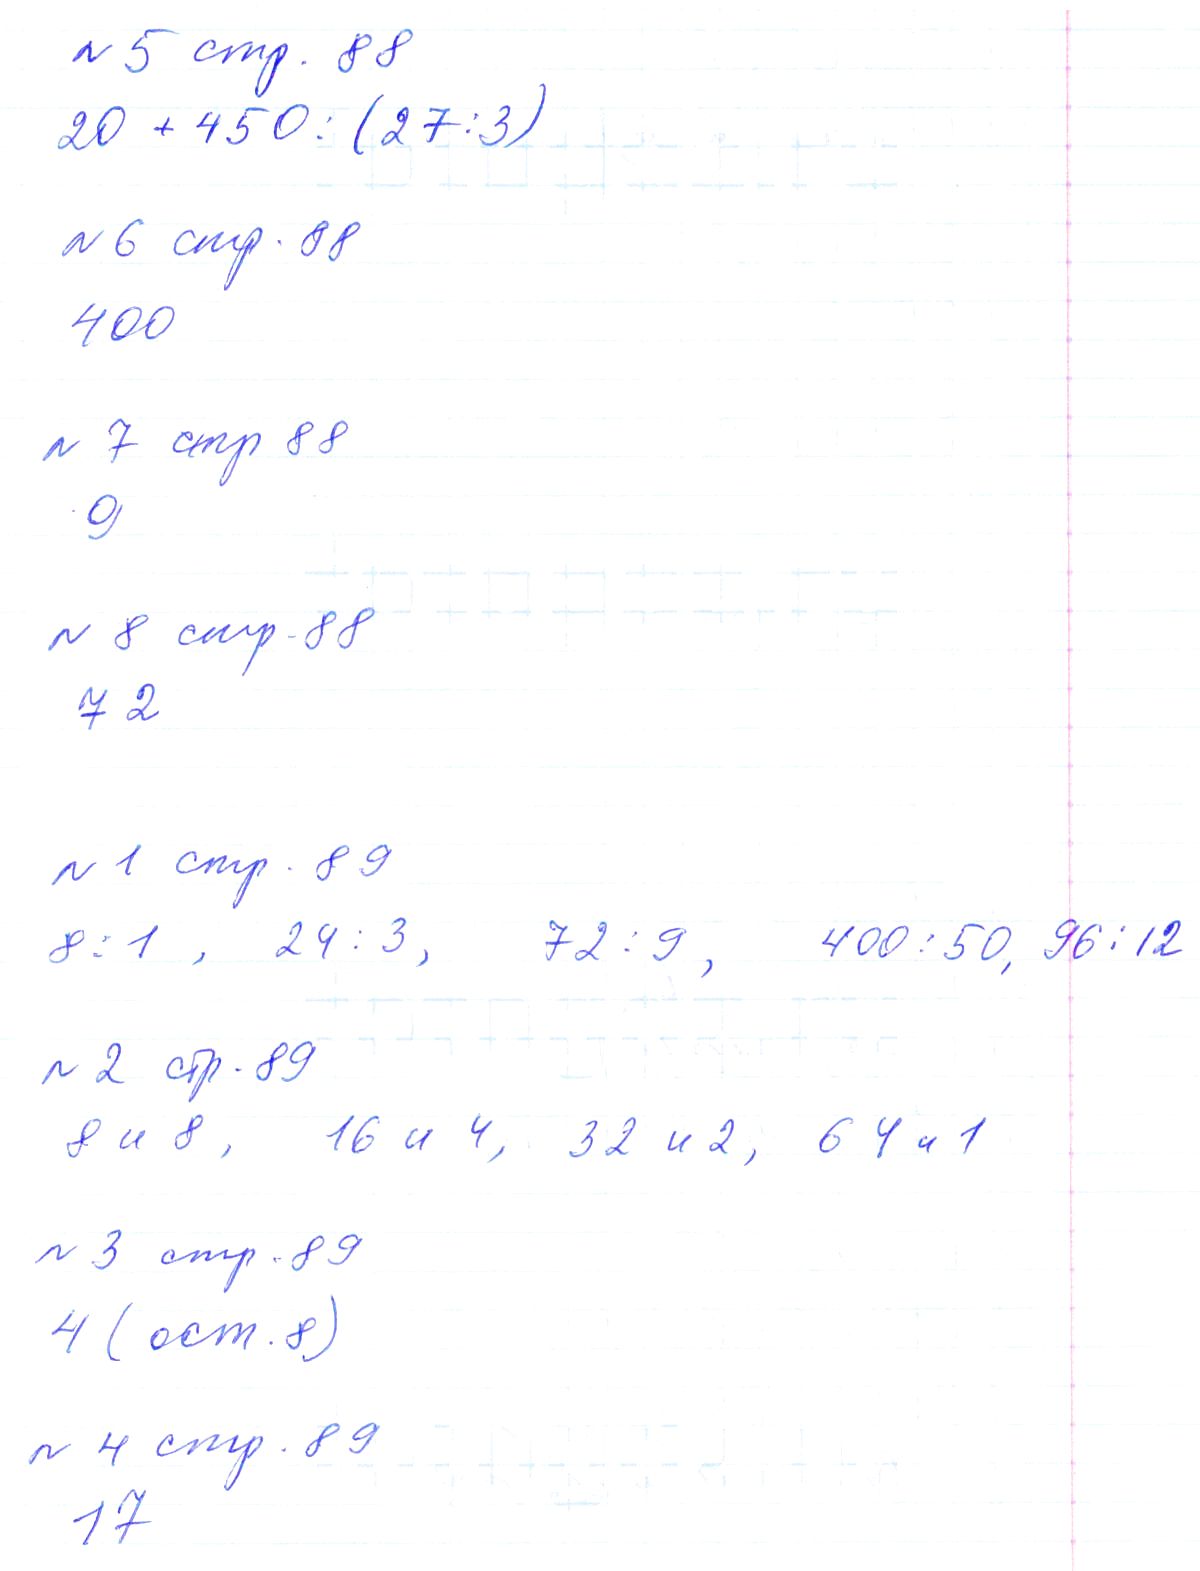 №5 стр. 88
20 + 450 : (27:3)
№6 стр. 88
400
№7 стр 88
9
№8 стр. 88
72
№1 стр. 89
8:1, 24:3, 72:9, 400:50, 96:12
№2 стр. 89
8 и 8, 16 и 4, 32 и 2, 64 и 1
№3 стр. 89
4 (ост. 8)
№4 стр. 89
17